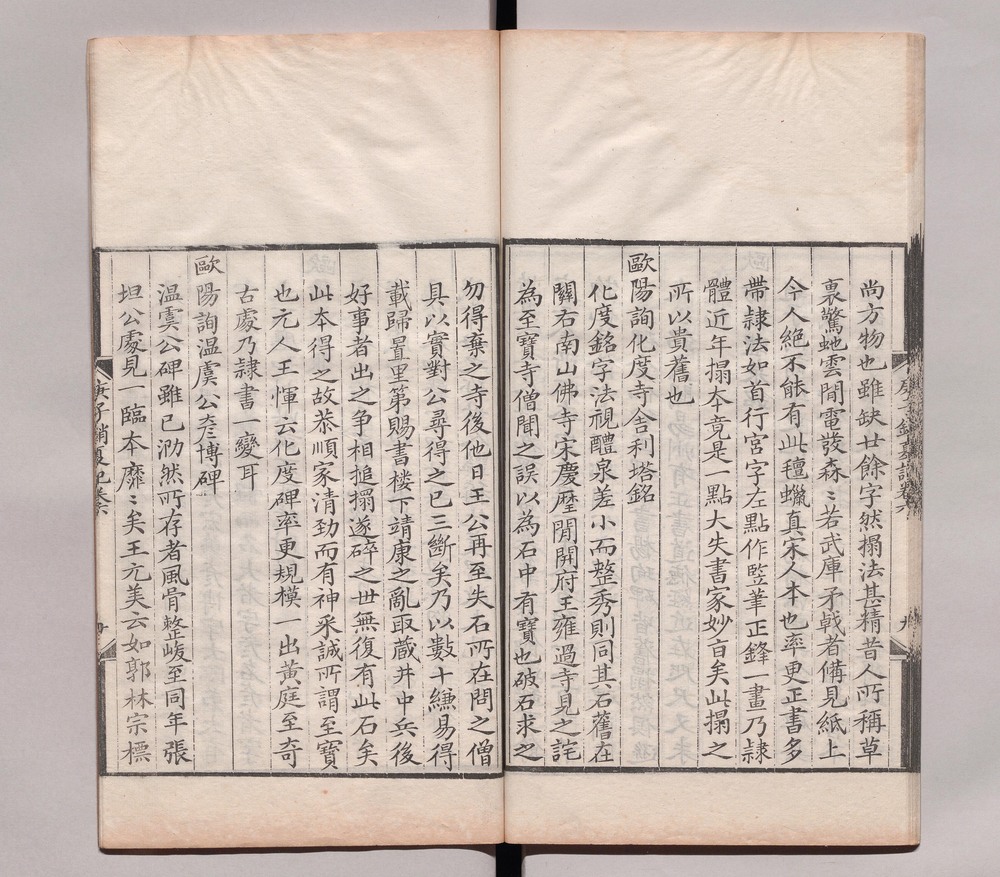 尚方物也雖缺廿餘字然搨法甚精昔人所稱草
裏驚虵雲閒電發森〻若武庫矛戟者僃見紙上
今人絕不能有此氊蠟真宋人本也率更正書多
帶隸法如首行宮字左點作竪筆正鋒一畫乃隸
體近年搨夲竟是一點大失書家妙㫖矣此搨之
所以貴舊也
歐陽詢化度寺舍利塔銘
化度銘字法視醴泉差小而整秀則同其石舊在
關右南山佛寺宋慶厯閒開府王雍過寺見之詫
為至寶寺僧聞之誤以為石中有寶也破石求之
勿得棄之寺後他日王公再至失石所在問之僧
具以實對公尋得之已三斷矣乃以數十縑易得
載歸置里第賜書樓下靖康之亂取藏井中兵後
好事者出之争相搥搨遂碎之世無復有此石矣
此本得之故恭順家清勁而有神采誠所謂至寶
也元人王惲云化度碑率更規模一出黃庭至奇
古處乃隸書一變耳
歐陽詢温虞公彦博碑
温虞公碑雖已泐然所存者風骨整峻至同年張
坦公處見一臨本靡〻矣王元美云如郭林宗標
庚子銷夏記卷六